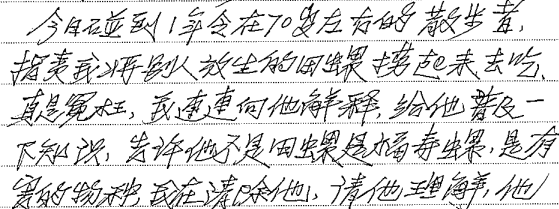 今日碰到1年令在70岁左右的散步者,
指责我将别人放生的田螺摸起来去吃、
真是冤枉, 我连连向他解释, 给他普及一
下知识, 告许他不是田螺是福寿螺, 是有
害的物种, 我在清除他, 请他理解, 他